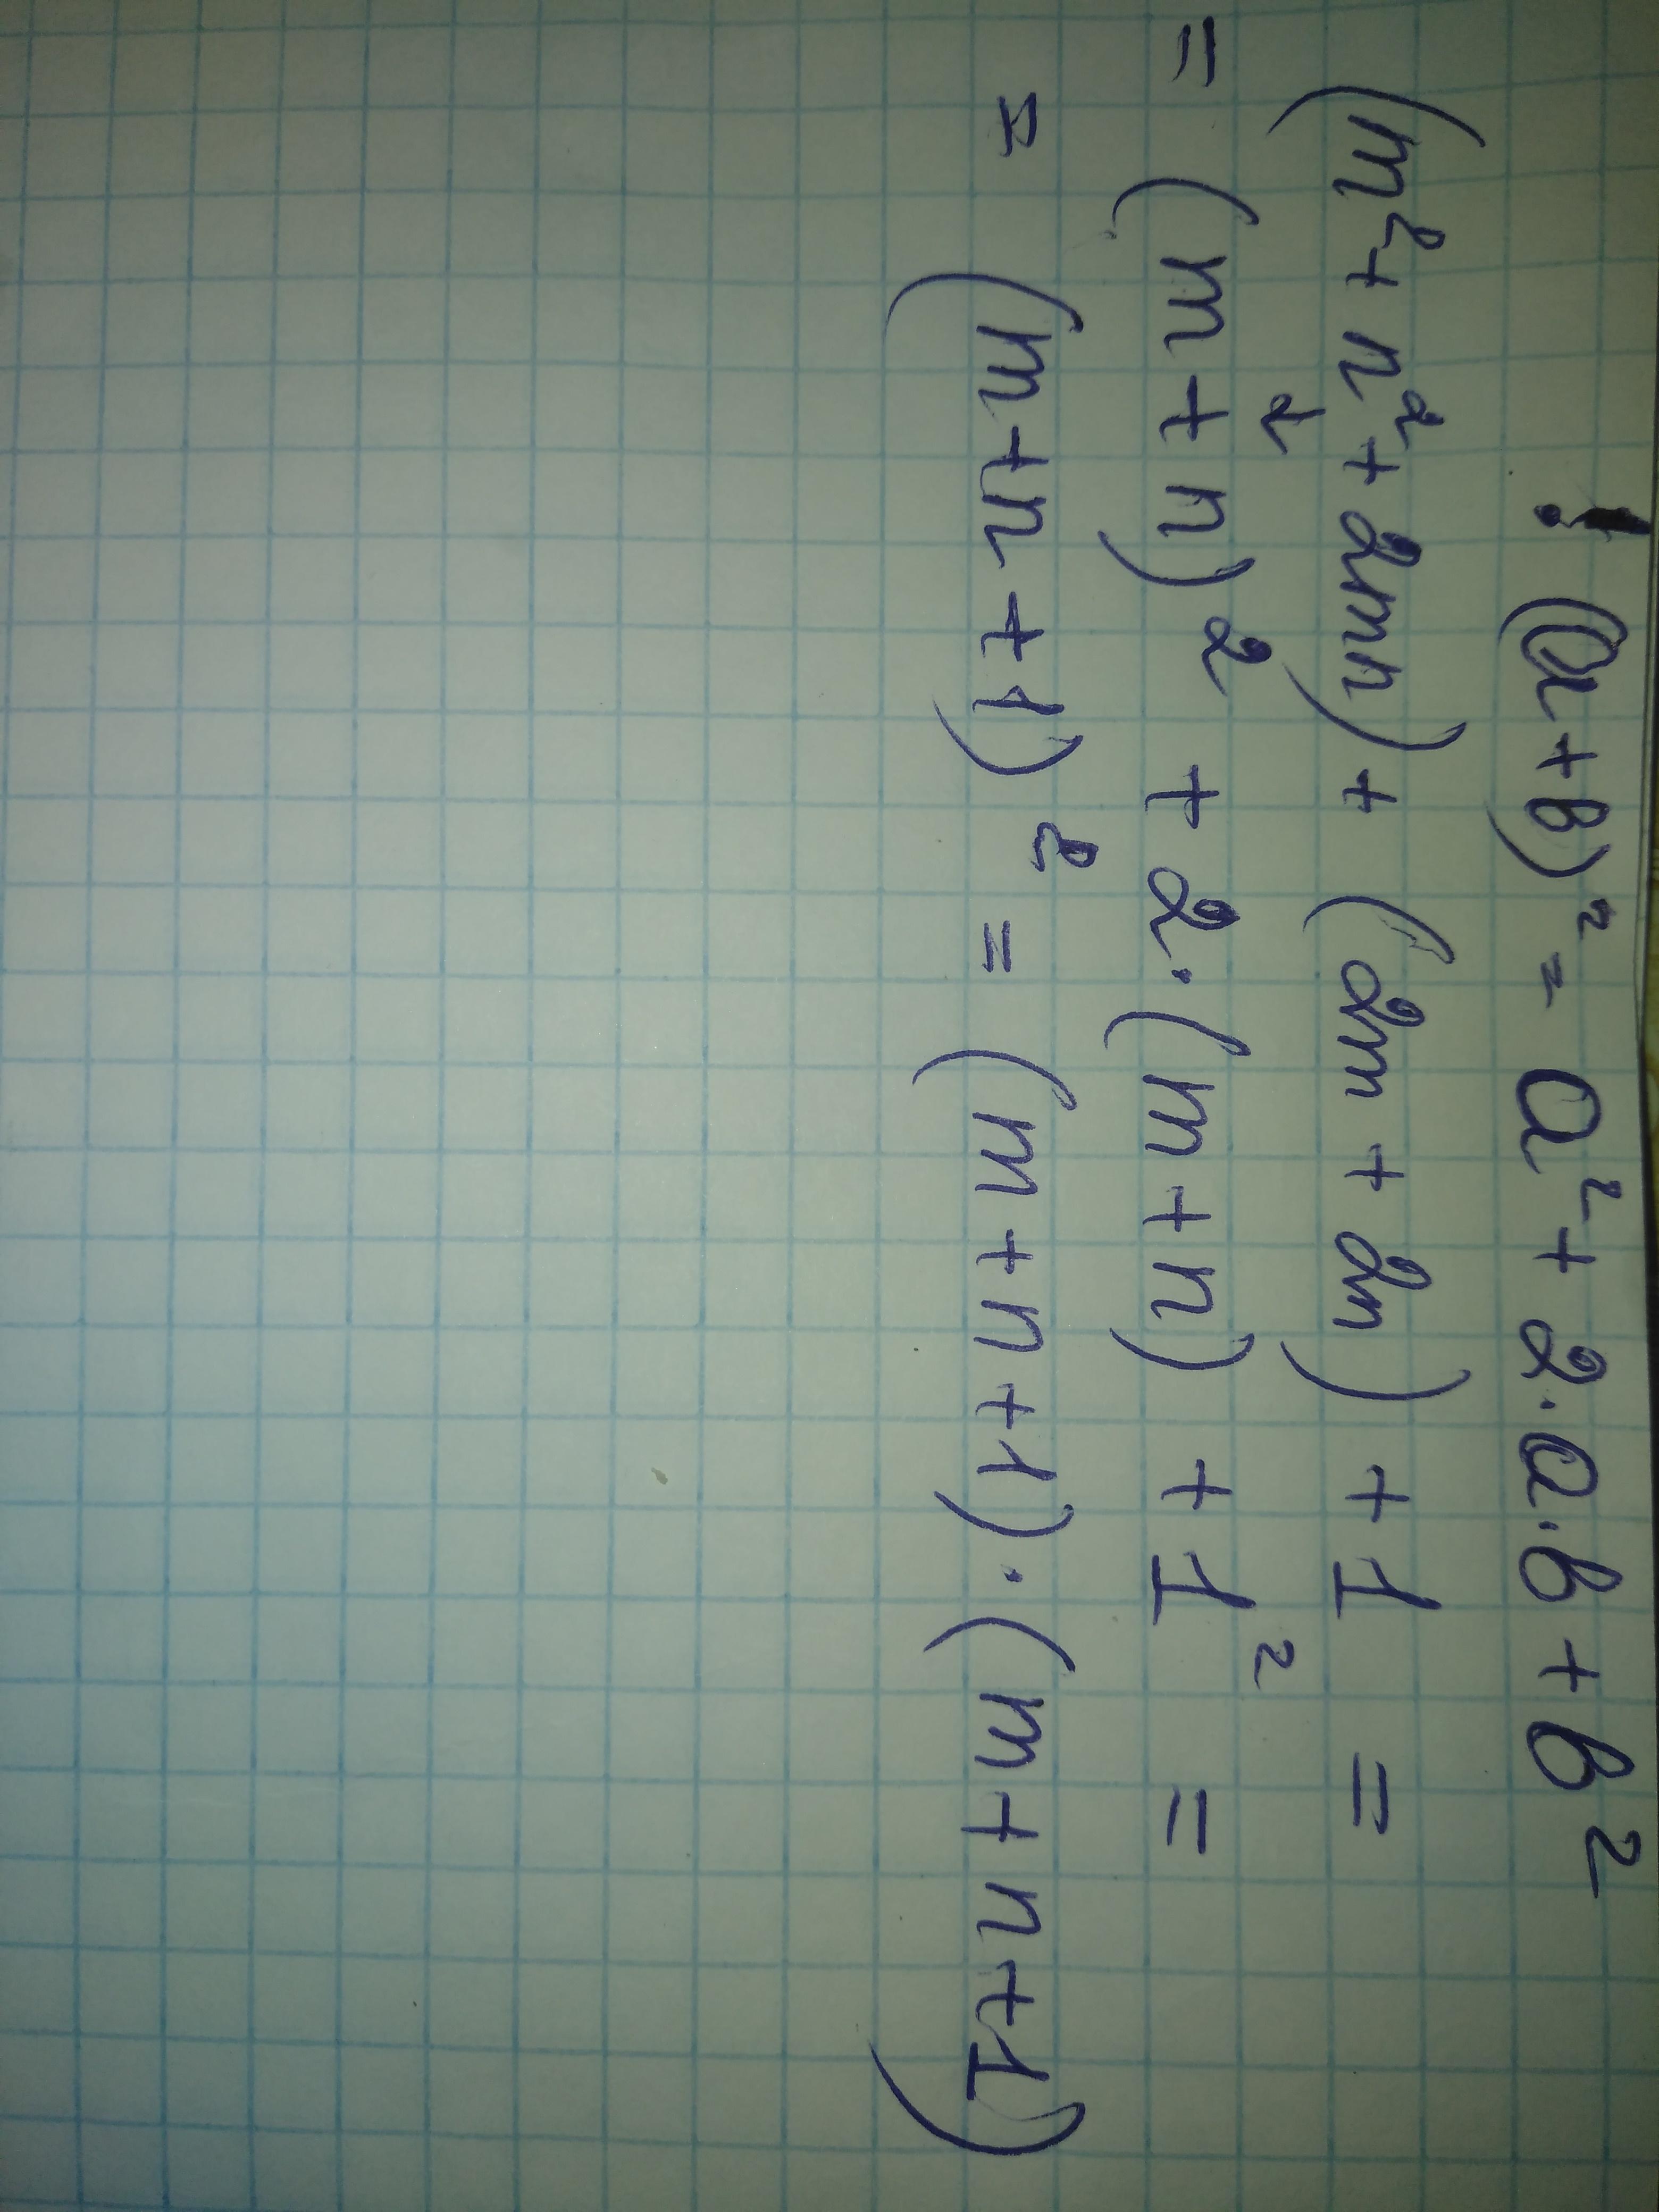 ! (a+b)² = a² + 2·a·b + b²
(m² + n² + 2mn) + (2m + 2n) + 1 =
= (m + n)² + 2·(m + n) + 1² =
= (m + n + 1)² = (m + n + 1)·(m + n + 1)